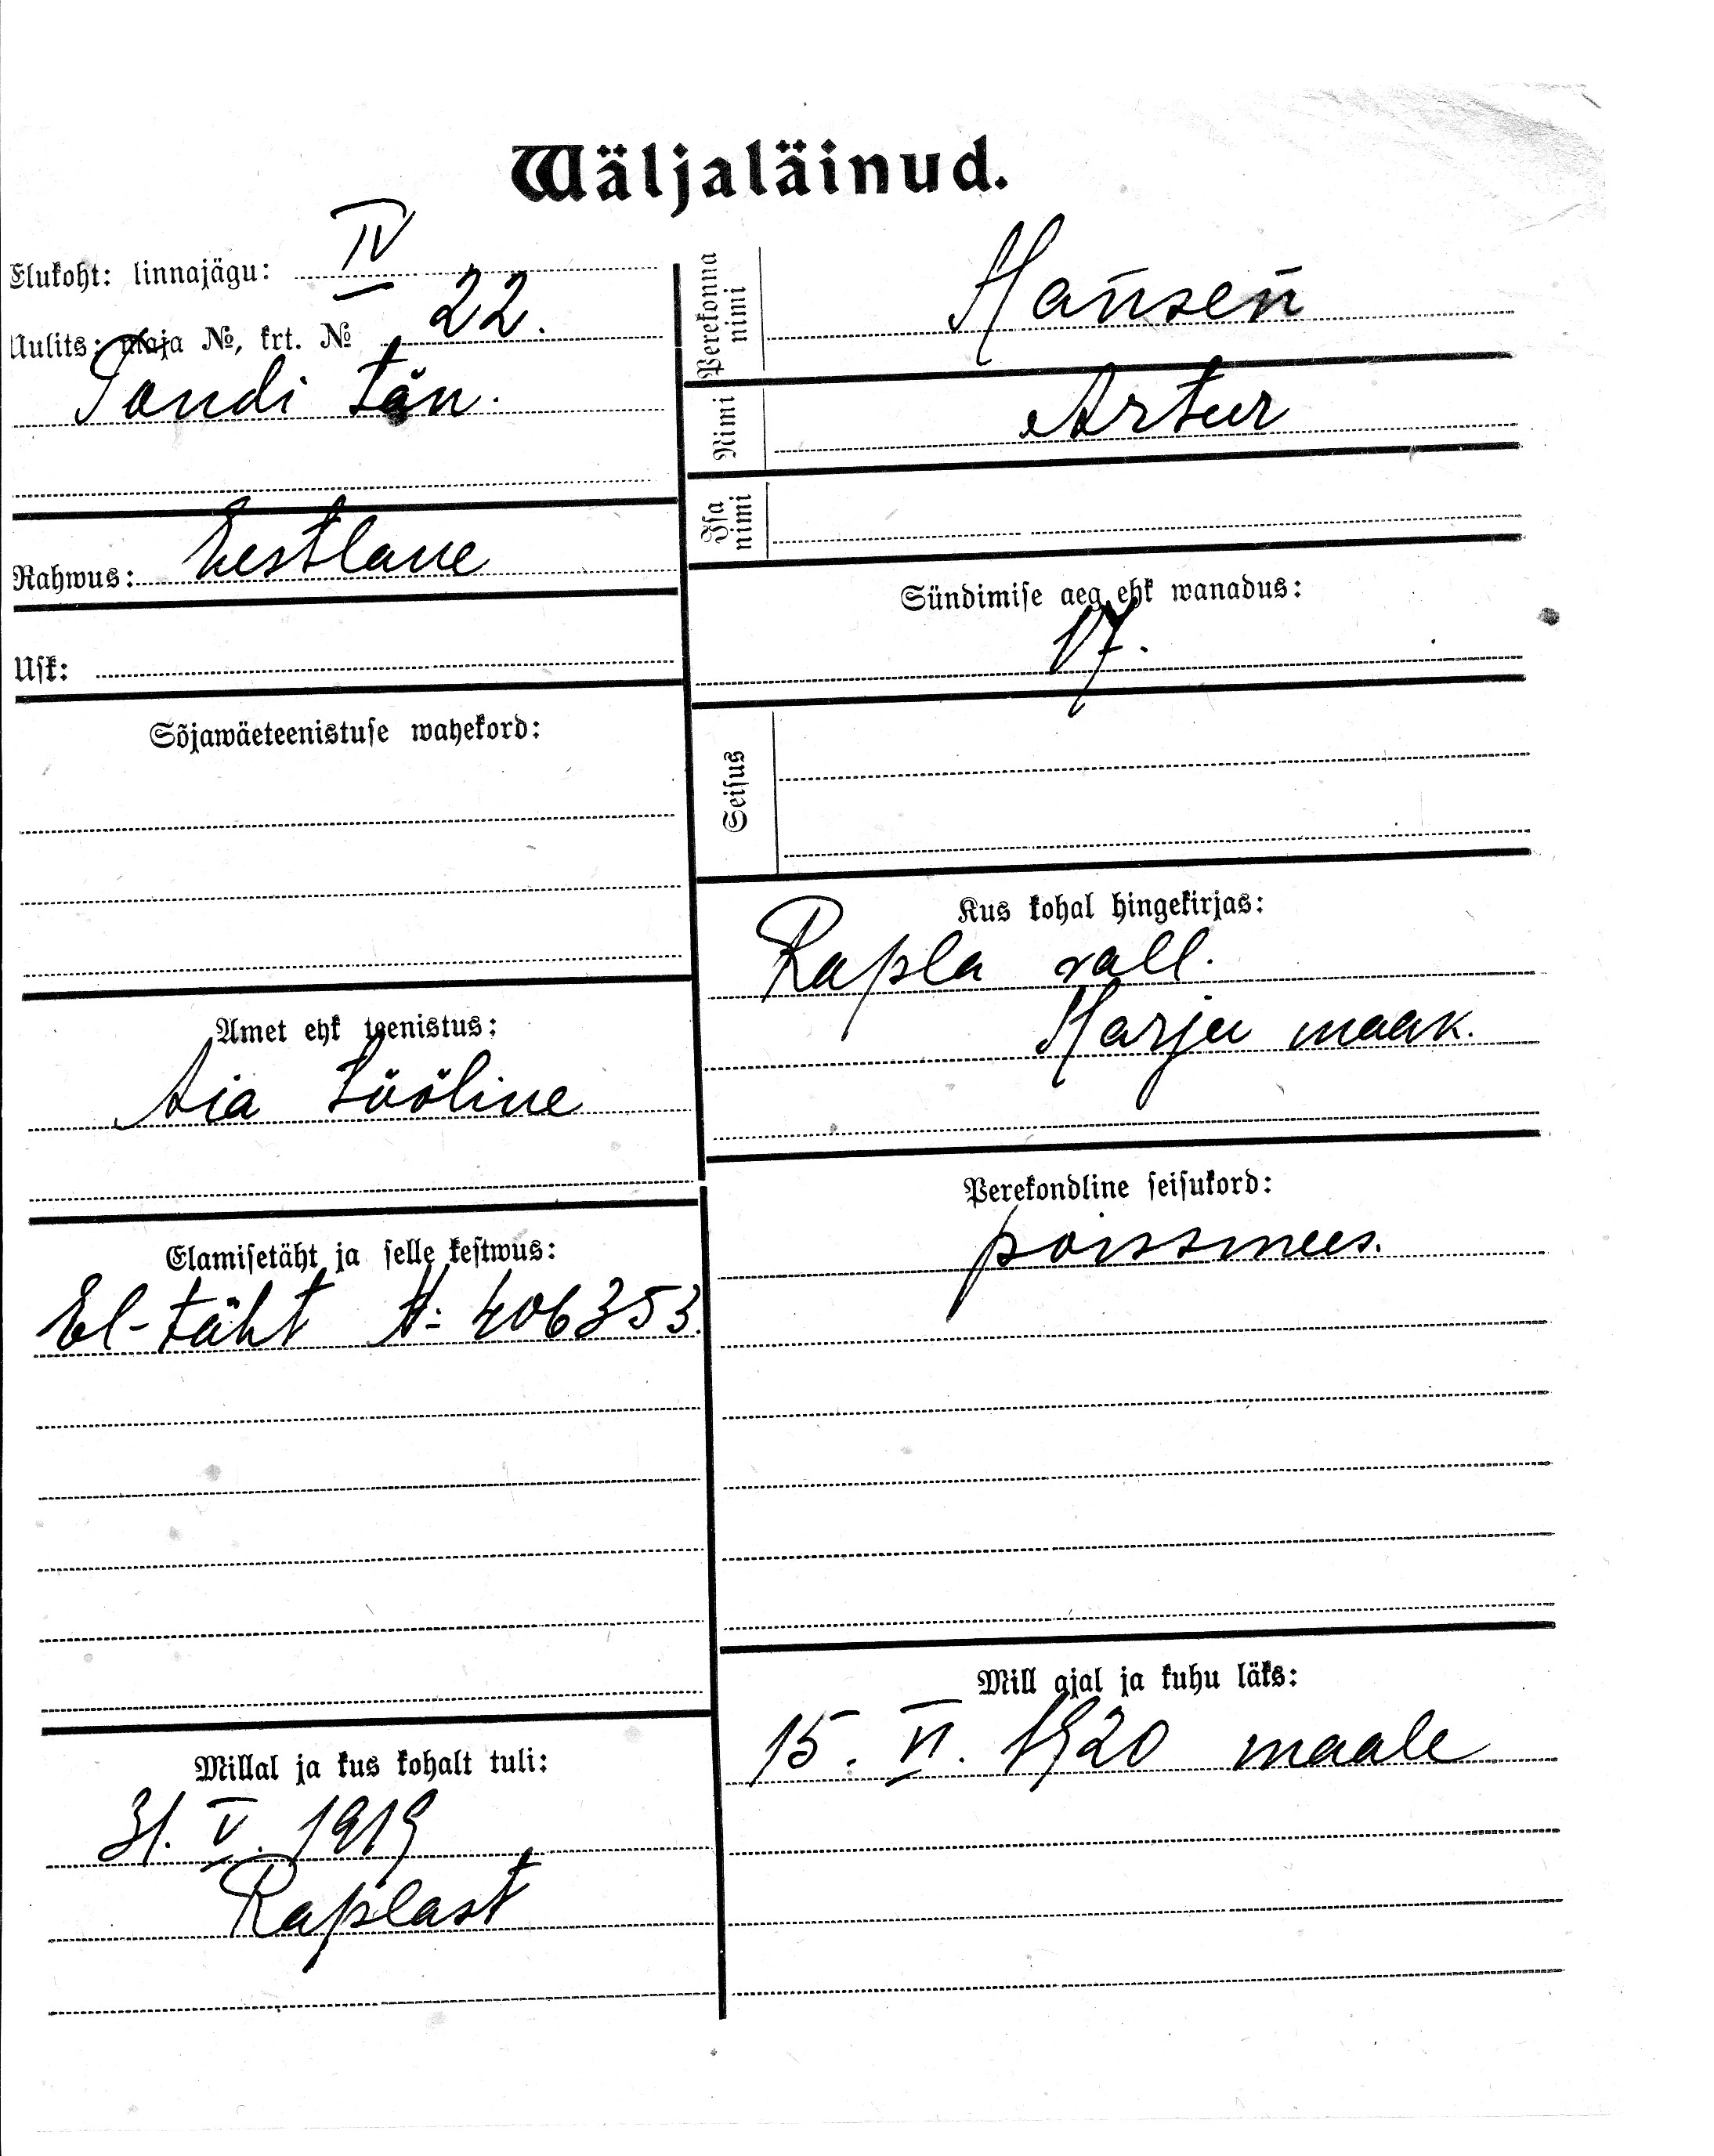 Wäljaläinud.
Elukoht: linnajägu: IV
Uulits: maja №, krt. № 22.
Tondi tän.
Rahwus: Eestlane
Usk:
Sõjawäeteenistuse wahekord:
Amet ehk teenistus:
Aia tööline
Elamisetäht ja selle kestwus:
El-täht A: 406353.
Millal ja kus kohalt tuli:
31. V. 1919
Raplast
Perekonna nimi Hansen
Nimi Artur
Isa nimi
Sündimise aeg ehk wanadus:
17.
Seisus
Kus kohal hingekirjas:
Rapla vall.
Harju maak.
Perekondline seisukord:
poissmees.
Mill ajal ja kuhu läks:
15. VI. 1920 maale